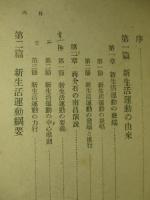 序
第一篇 新生活運動の由來
第一章 新生活運動の發端
第一節 新生活運動の提唱
第二節 新生活運動の發端と進行
第二章 蔣介石の南昌演說
第一節 新生活運動の要義
第二節 新生活運動の中心準則
第三節 新生活運動の力行
第二篇 新生活運動綱要